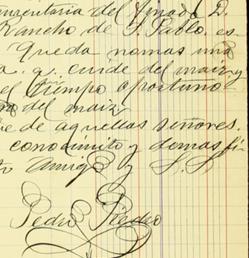 mentaria del finado D.
Rancho de S. Pablo es
queda nomas una
a. q. cuide del maiz y
el tiempo oportuno
del maiz
de aquellas señores.
conocimto y demas fi
to amigo y S. S.
Pedro